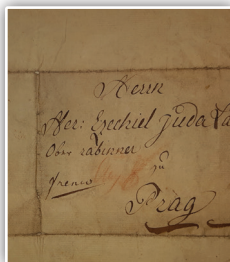 Herrn
Her: Ezechiel Juda La
Ober rabinner
zu
franco
Prag